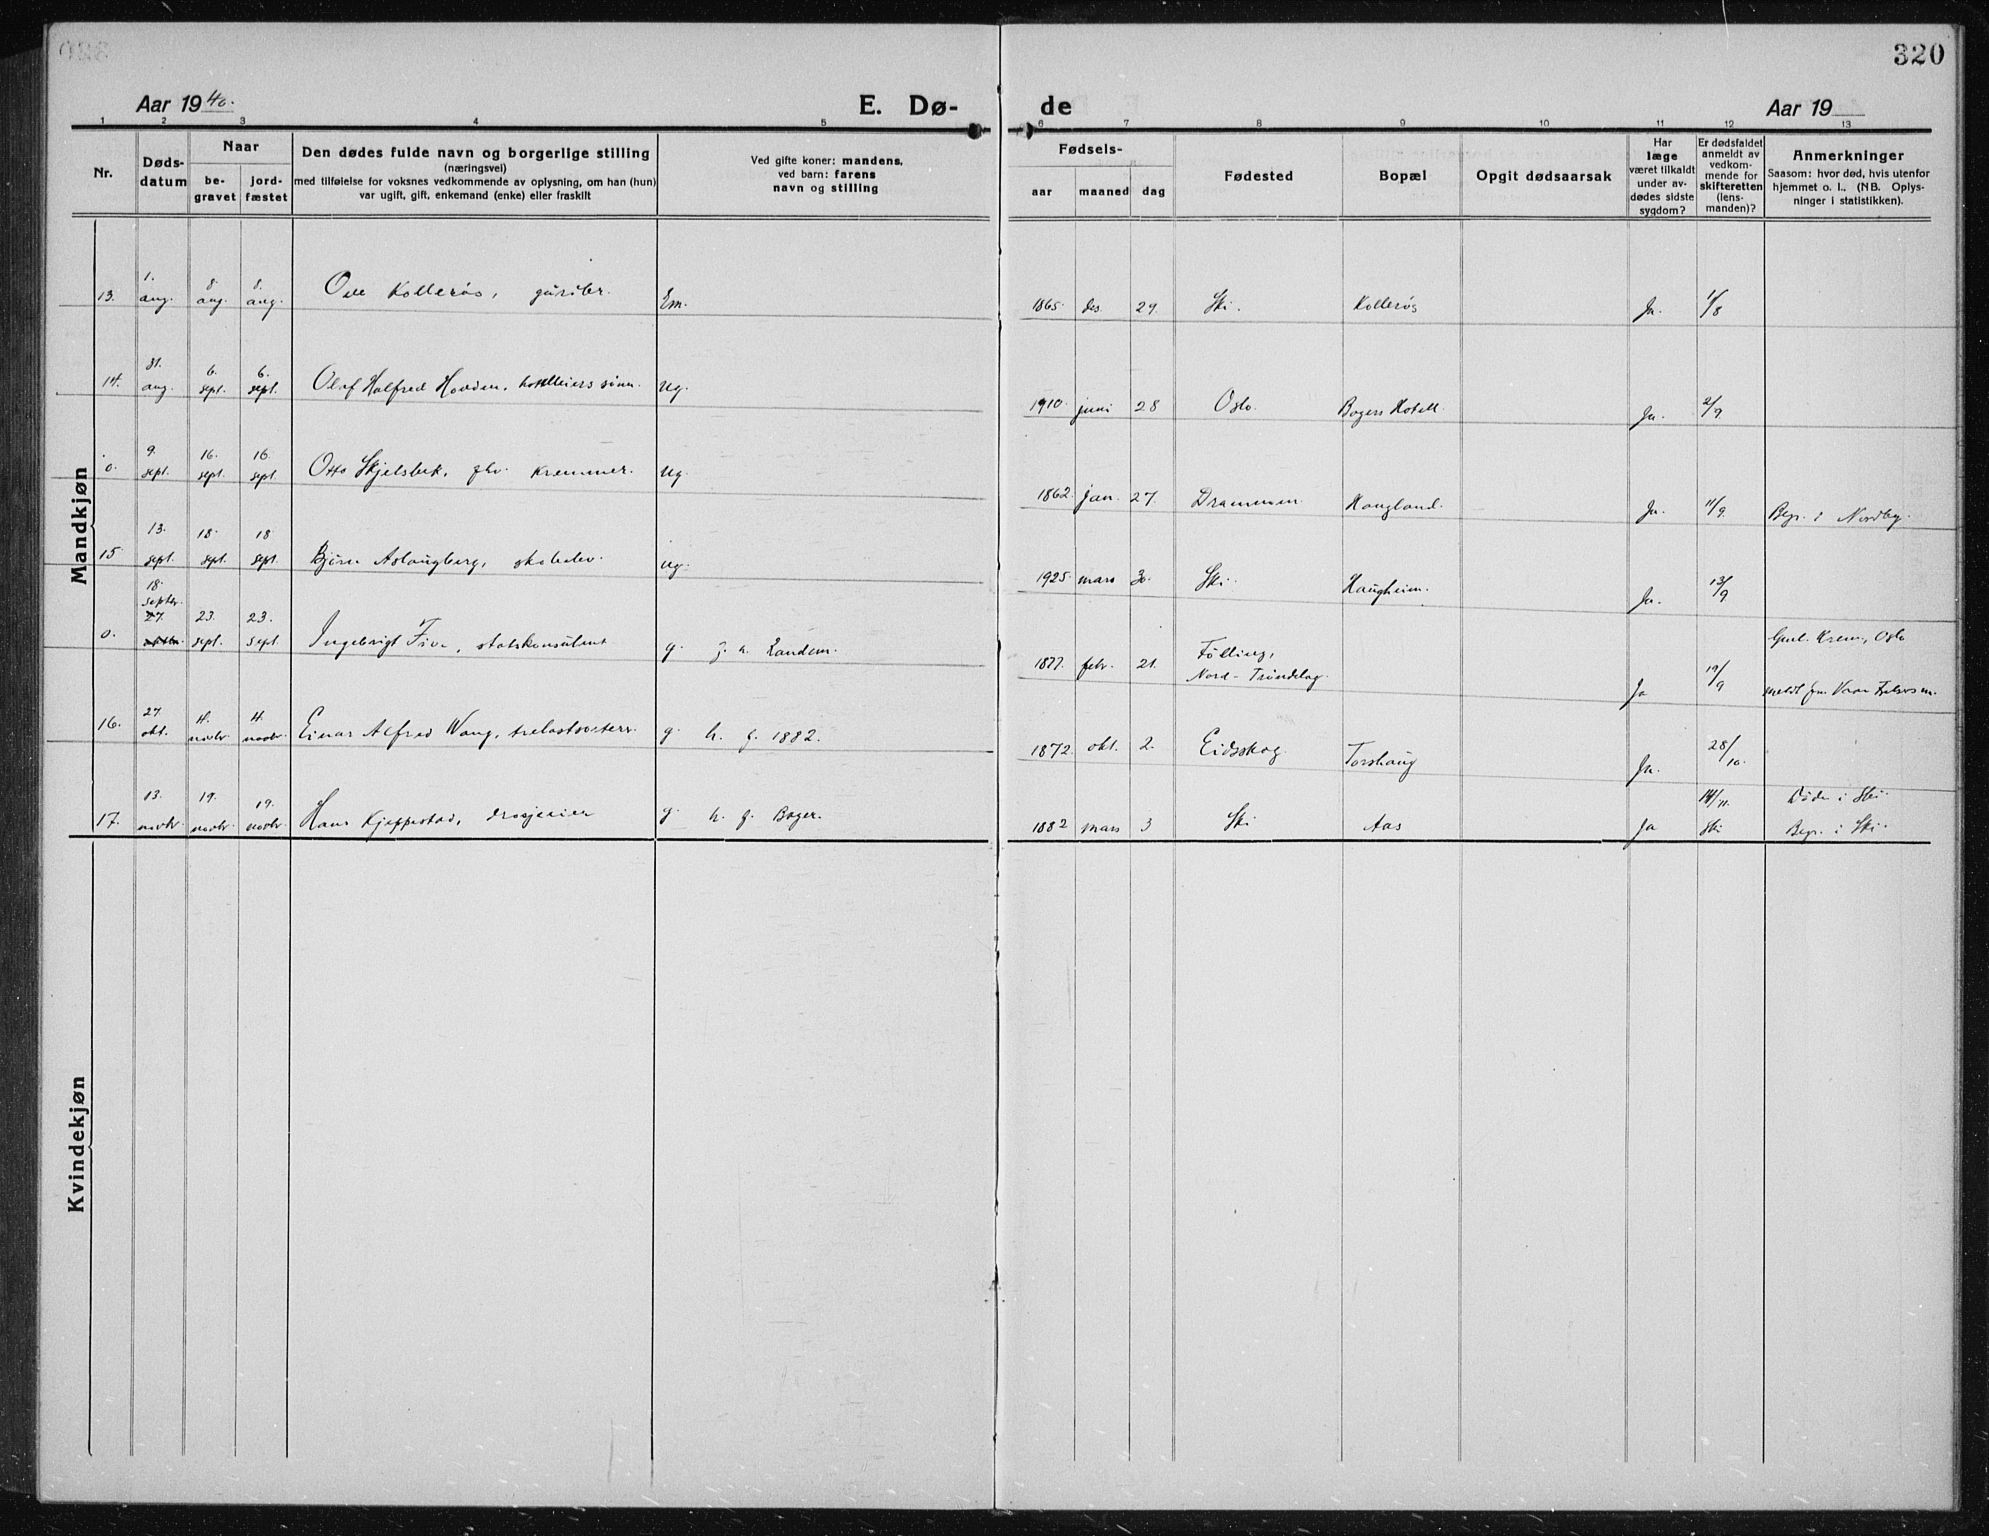 320
Aar 1940.
E. Dø-
de
Aar 19
1 2 3 4 5 6 7 8 9 10 11 12 13
Nr.
Døds-
datum
Naar
be-
gravet
jord-
fæstet
Den dødes fulde navn og borgerlige stilling
(næringsvei)
med tilføielse for voksnes vedkommende av oplysning, om han (hun)
var ugift, gift, enkemand (enke) eller fraskilt
Ved gifte koner: mandens,
ved barn: farens
navn og stilling
Fødsels-
aar maaned dag
Fødested
Bopæl
Opgit dødsaarsak
Har
læge
været tilkaldt
under av-
dødes sidste
sygdom?
Er dødsfaldet
anmeldt av
vedkom-
mende for
skifteretten
(lens-
manden)?
Anmerkninger
Saasom: hvor død, hvis utenfor
hjemmet o. l., (NB. Oplys-
ninger i statistikken).
Mandkjøn
13. 1. aug. 8. aug. 8. aug. Kollerøs, Em. 1865. des. 29. Ski. Kollerøs Ja. 1/8
14. 31. aug. 6. sept. 6. sept. Olaf Halfred Hovden, hotelleiers sønn. ug. 1910. juni 28 Oslo. Bogers Hotell. Ja. 2/9.
0. 9. sept. 16. sept. 16. sept. Otto Skjelsbek, fhv. kremmer. ug. 1862. jan. 27. Drammen Haugland. Ja. 11/9. Begr. i Nordby.
15. 13. sept. 18. sept. 18 sept. Bjørn Aslaugberg, skoleelev. ug. 1925. mars 30. Ski. Haugheim. Ja. 13/9
0. 18. septbr. 27. 23. sept. 23. sept. Ingebrigt Five, statskonsulent g. f. h. 1877. febr. 21. Følling, Nord-Trøndelag. Ja 19/9 Krem., Oslo meldt
16. 27. okt. 4. novbr. 4. novbr. Einar Alfred Wang, g. h. f. 1882. 1872. okt. 2. Eidsskog. Torshaug Ja. 28/10.
17. 13. novbr. 19. novbr. 19. novbr. Hans Kjeppestad, drosjeeier g. h. f. Boger. 1882 mars 3 Ski Aas Ja 14/11. Ski Døde i Ski. Begr. i Ski.
Kvindekjøn